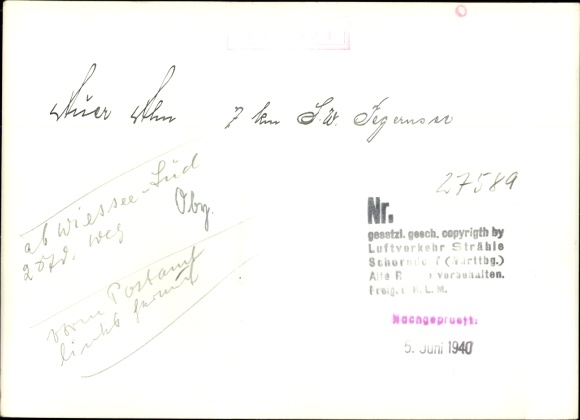 Auer Alm 7 km S.W. Tegernsee
27589
ab Wiessee-Süd
Oby.
2 Std. Weg
Nr.
gesetzl. gesch. copyrigth by
Luftverkehr Strähle
Schorndorf (Württbg.)
Alle R vorbehalten.
Freig. R.L.M.
vorm Postamt
links
Nachgeprueft:
5. Juni 1940